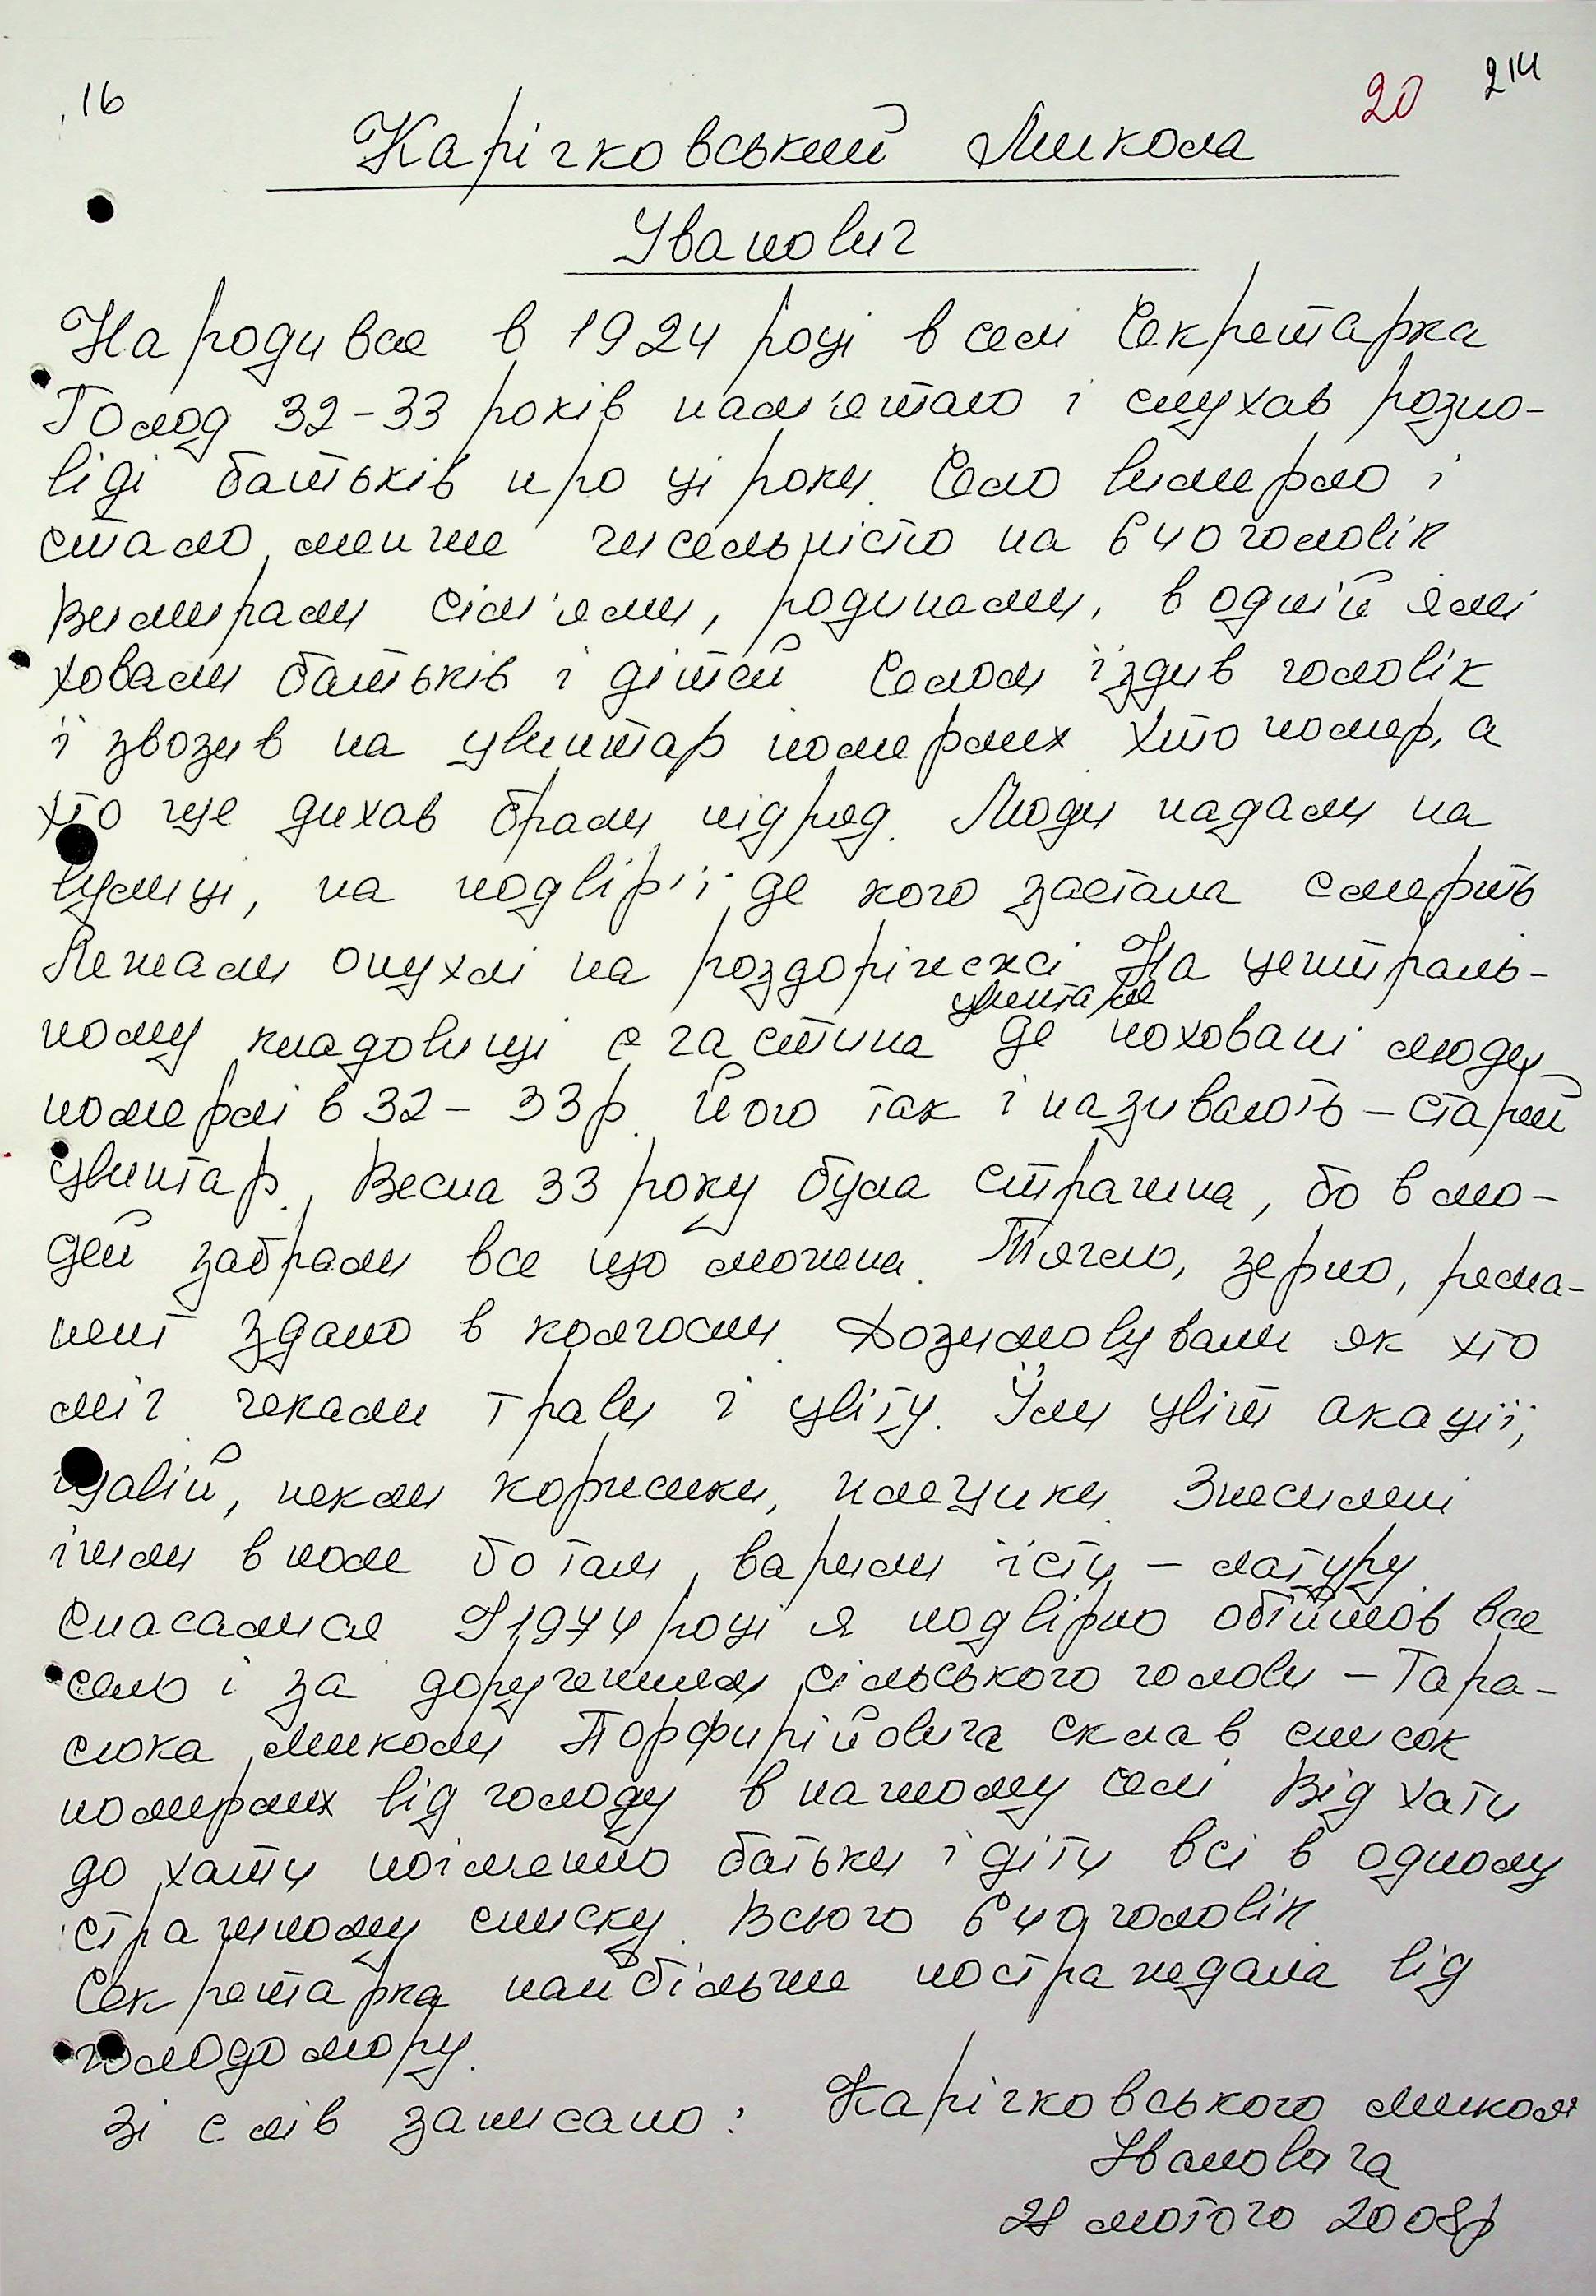 16
20
214
Карічковський Микола
Іванович
Народився в 1924 році в селі Секретарка
Голод 32-33 років пам'ятаю і слухав розпо-
віді батьків про ці роки. Село вимерло і
стало менше чисельністю на 640 чоловік
Вимирали сім'ями, родинами, в одній ямі
ховали батьків і дітей Селом їздив чоловік
і звозив на цвинтар померлих Хто помер, а
хто ще дихав брали підряд. Люди падали на
вулиці, на подвір'ї де кого застала смерть
Лежали опухлі на роздоріжжі На централь-
цвинтаря
ному кладовищі є частина де поховані люди
померлі в 32-33р. Його так і називають - старий
цвинтар. Весна 33 року була страшна, бо в лю-
дей забрали все що можна. Тягло, зерно, рема-
нент здано в колгоспи Дозимовували як хто
міг чекали трави і цвіту. Їли цвіт акації,
щавій, пекли коржики, плецики Знесилені
ішли в поле бо там варили їсти - латуру.
Спасалися У 1974 році я подвірно обійшов все
село і за дорученням сільського голови - Тара-
сюка Миколи Порфирійовича склав список
померлих від голоду в нашому селі Від хати
до хати поіменно батьки і діти всі в одному
страшному списку. Всього 640 чоловік
Секретарка найбільше постраждала від
голодомору.
Зі слів записано: Карічковського Миколи
Івановича
28 лютого 2008р